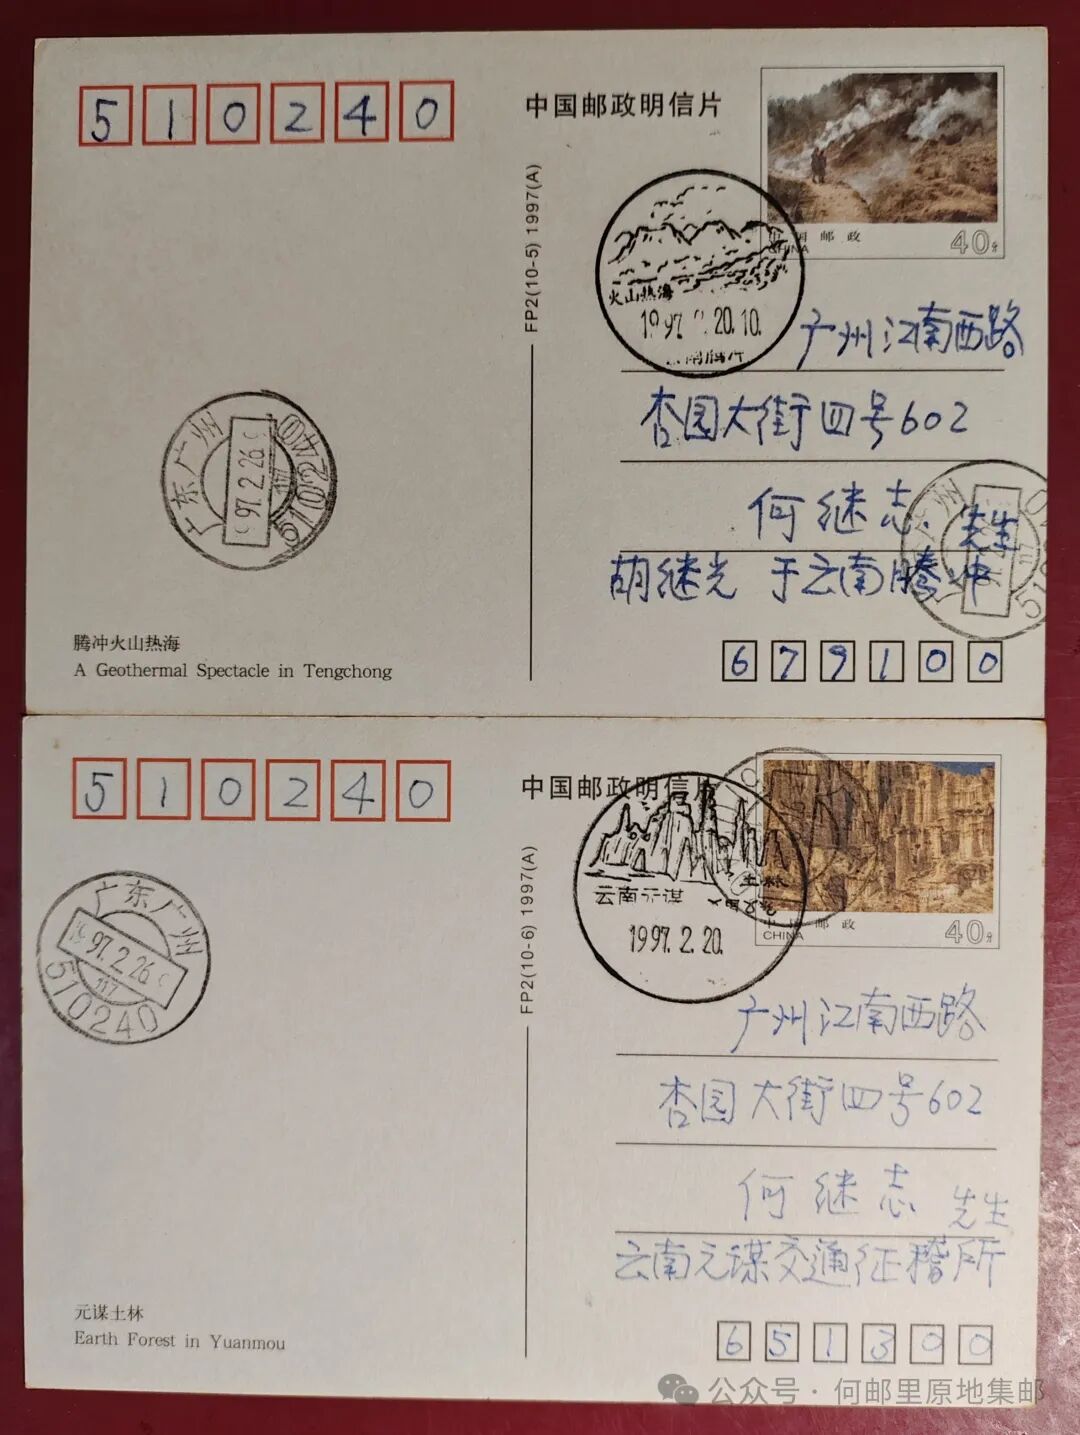 510240
中国邮政明信片
中国邮政
CHINA
40分
FP2(10-5) 1997(A)
火山热海
20.10.
云南腾冲
广州江南西路
杏园大街四号602
何继志 先生
胡继光 于云南腾冲
679100
广东广州
97.2.26
117
510240
腾冲火山热海
A Geothermal Spectacle in Tengchong
510240
中国邮政明信片
中国邮政
CHINA
40分
FP2(10-6) 1997(A)
土林
云南元谋
1997.2.20.
广州江南西路
杏园大街四号602
何继志 先生
云南元谋交通征稽所
651300
广东广州
97.2.26
117
510240
元谋土林
Earth Forest in Yuanmou
公众号·何邮里原地集邮